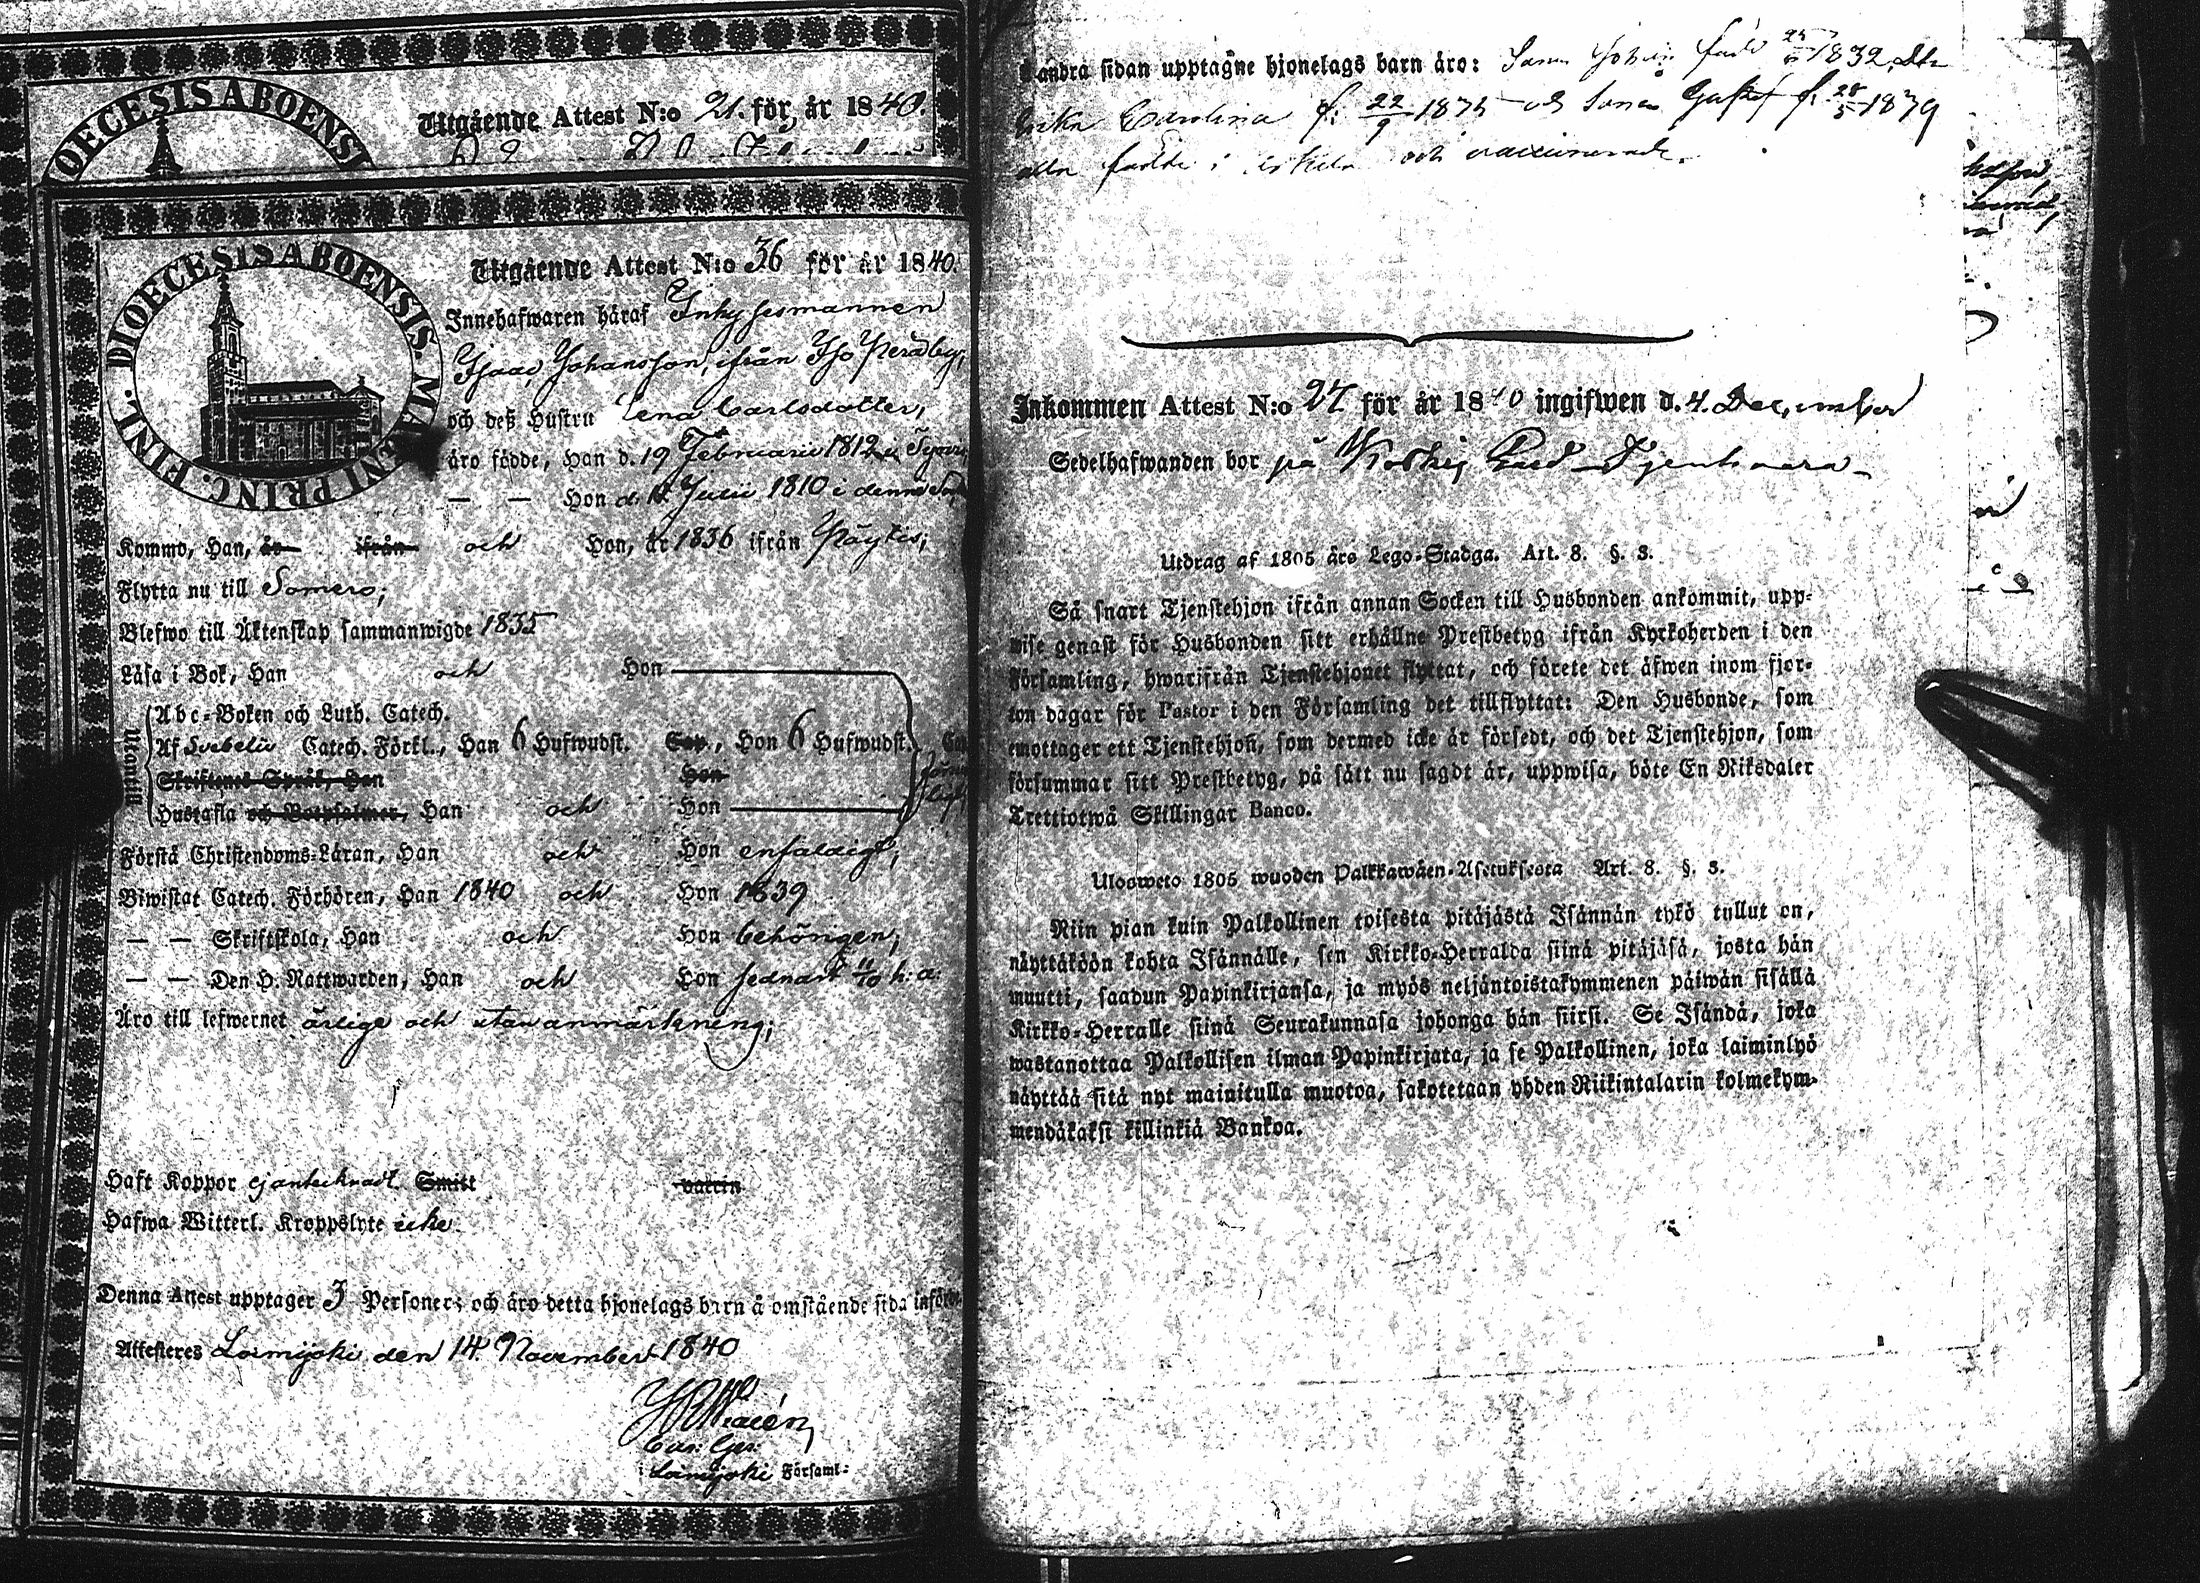 DIOECESIS ABOENSI
Utgående Attest N:o 21. för år 1840.
DIOECESIS ABOENSIS. MAGNI PRINC. FINL.
Utgående Attest N:o 36 för år 1840.
Innehafwaren häraf Inhysesmannen
Isaac Johansson, ifrån Iso Peräby,
och deß Hustru Lena Carlsdotter,
äro födde, Han d. 19 Februarii 1812 i
— — Hon d. Julii 1810 i denna
Kommo, Han, år ifrån och Hon, år 1836 ifrån Pöytis;
Flytta nu till Somero;
Blefwo till Äktenskap sammanwigde 1835
Läsa i Bok, Han och Hon
Utantill
Abc-Boken och Luth. Catech.
Af Svebelii Catech. Förkl., Han 6 Hufwudst. Sap., Hon 6 Hufwudst.
Skriftenes Språk, Han Hon
Hustafla och Botpsalmer, Han och Hon
Förstå Christendoms-Läran, Han och Hon enfaldigt;
Biwistat Catech. Förhören, Han 1840 och Hon 1839
— — Skriftskola, Han och Hon behörigen;
— — Den H. Nattwarden, Han och Hon sednast 11/10 h: a:
Äro till lefwernet ärlige och utan anmärkning;
Haft Koppor ej antecknadt Smitt vaccin
Hafwa Witterl. Kroppslyte icke.
Denna Attest upptager 3 Personer; och äro detta hjonelags barn å omstående sida införde
Attesteres Loimijoki den 14. November 1840
i Loimijoki Församl:
andra sidan upptagne hjonelags barn äro: Sonen Johan född 1832,
Carolina f: 22/9 1835 och Sonen Gustaf f. 28/5 1839
alla födde i och vaccinerade.
Inkommen Attest N:o 27 för år 1840 ingifwen d. 4. December
Sedelhafwanden bor på Koskis
Utdrag af 1805 års Lego-Stadga. Art. 8. §. 3.
Så snart Tjenstehjon ifrån annan Socken till Husbonden ankommit, upp-
wise genast för Husbonden sitt erhållne Prestbetyg ifrån Kyrkoherden i den
Församling, hwarifrån Tjenstehjonet flyttat, och förete det äfwen inom fjor-
ton dagar för Pastor i den Församling det tillflyttat: Den Husbonde, som
emottager ett Tjenstehjon, som dermed icke är försedt, och det Tjenstehjon, som
försummar sitt Prestbetyg, på sätt nu sagdt är, uppwisa, böte En Riksdaler
Trettiotwå Skillingar Banco.
Ulosweto 1805 wuoden Palkkawäen-Asetuksesta Art. 8. §. 3.
Niin pian kuin Palkollinen toisesta pitäjästä Isännän tykö tullut on,
näyttäköön kohta Isännälle, sen Kirkko-Herralda siinä pitäjäsä, josta hän
muutti, saadun Papinkirjansa, ja myös neljäntoistakymmenen päiwän sisällä
Kirkko-Herralle siinä Seurakunnasa johonga hän siirsi. Se Isändä, joka
wastanottaa Palkollisen ilman Papinkirjata, ja se Palkollinen, joka laiminlyö
näyttää sitä nyt mainitulla muotoa, sakotetaan yhden Riikintalarin kolmekym-
mendäkaksi killinkiä Bankoa.